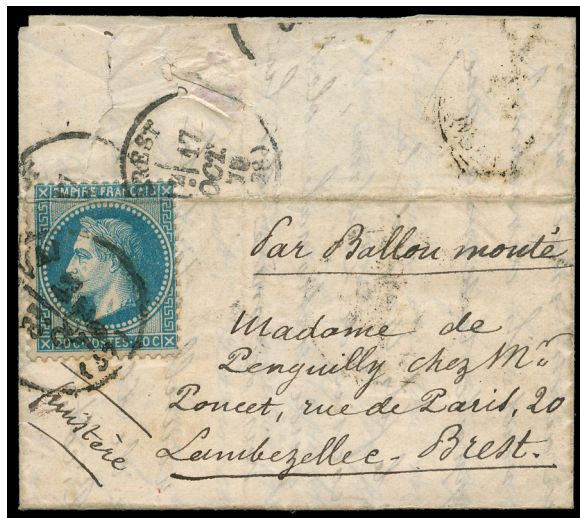 BREST
17
OCT.
70
(28)
EMPIRE FRANÇAIS
20 C POSTES 20 C
Par Ballon monté
Madame de
Penguilly chez Mr
Poncet, rue de Paris, 20
Lambezellec - Brest.
finistère